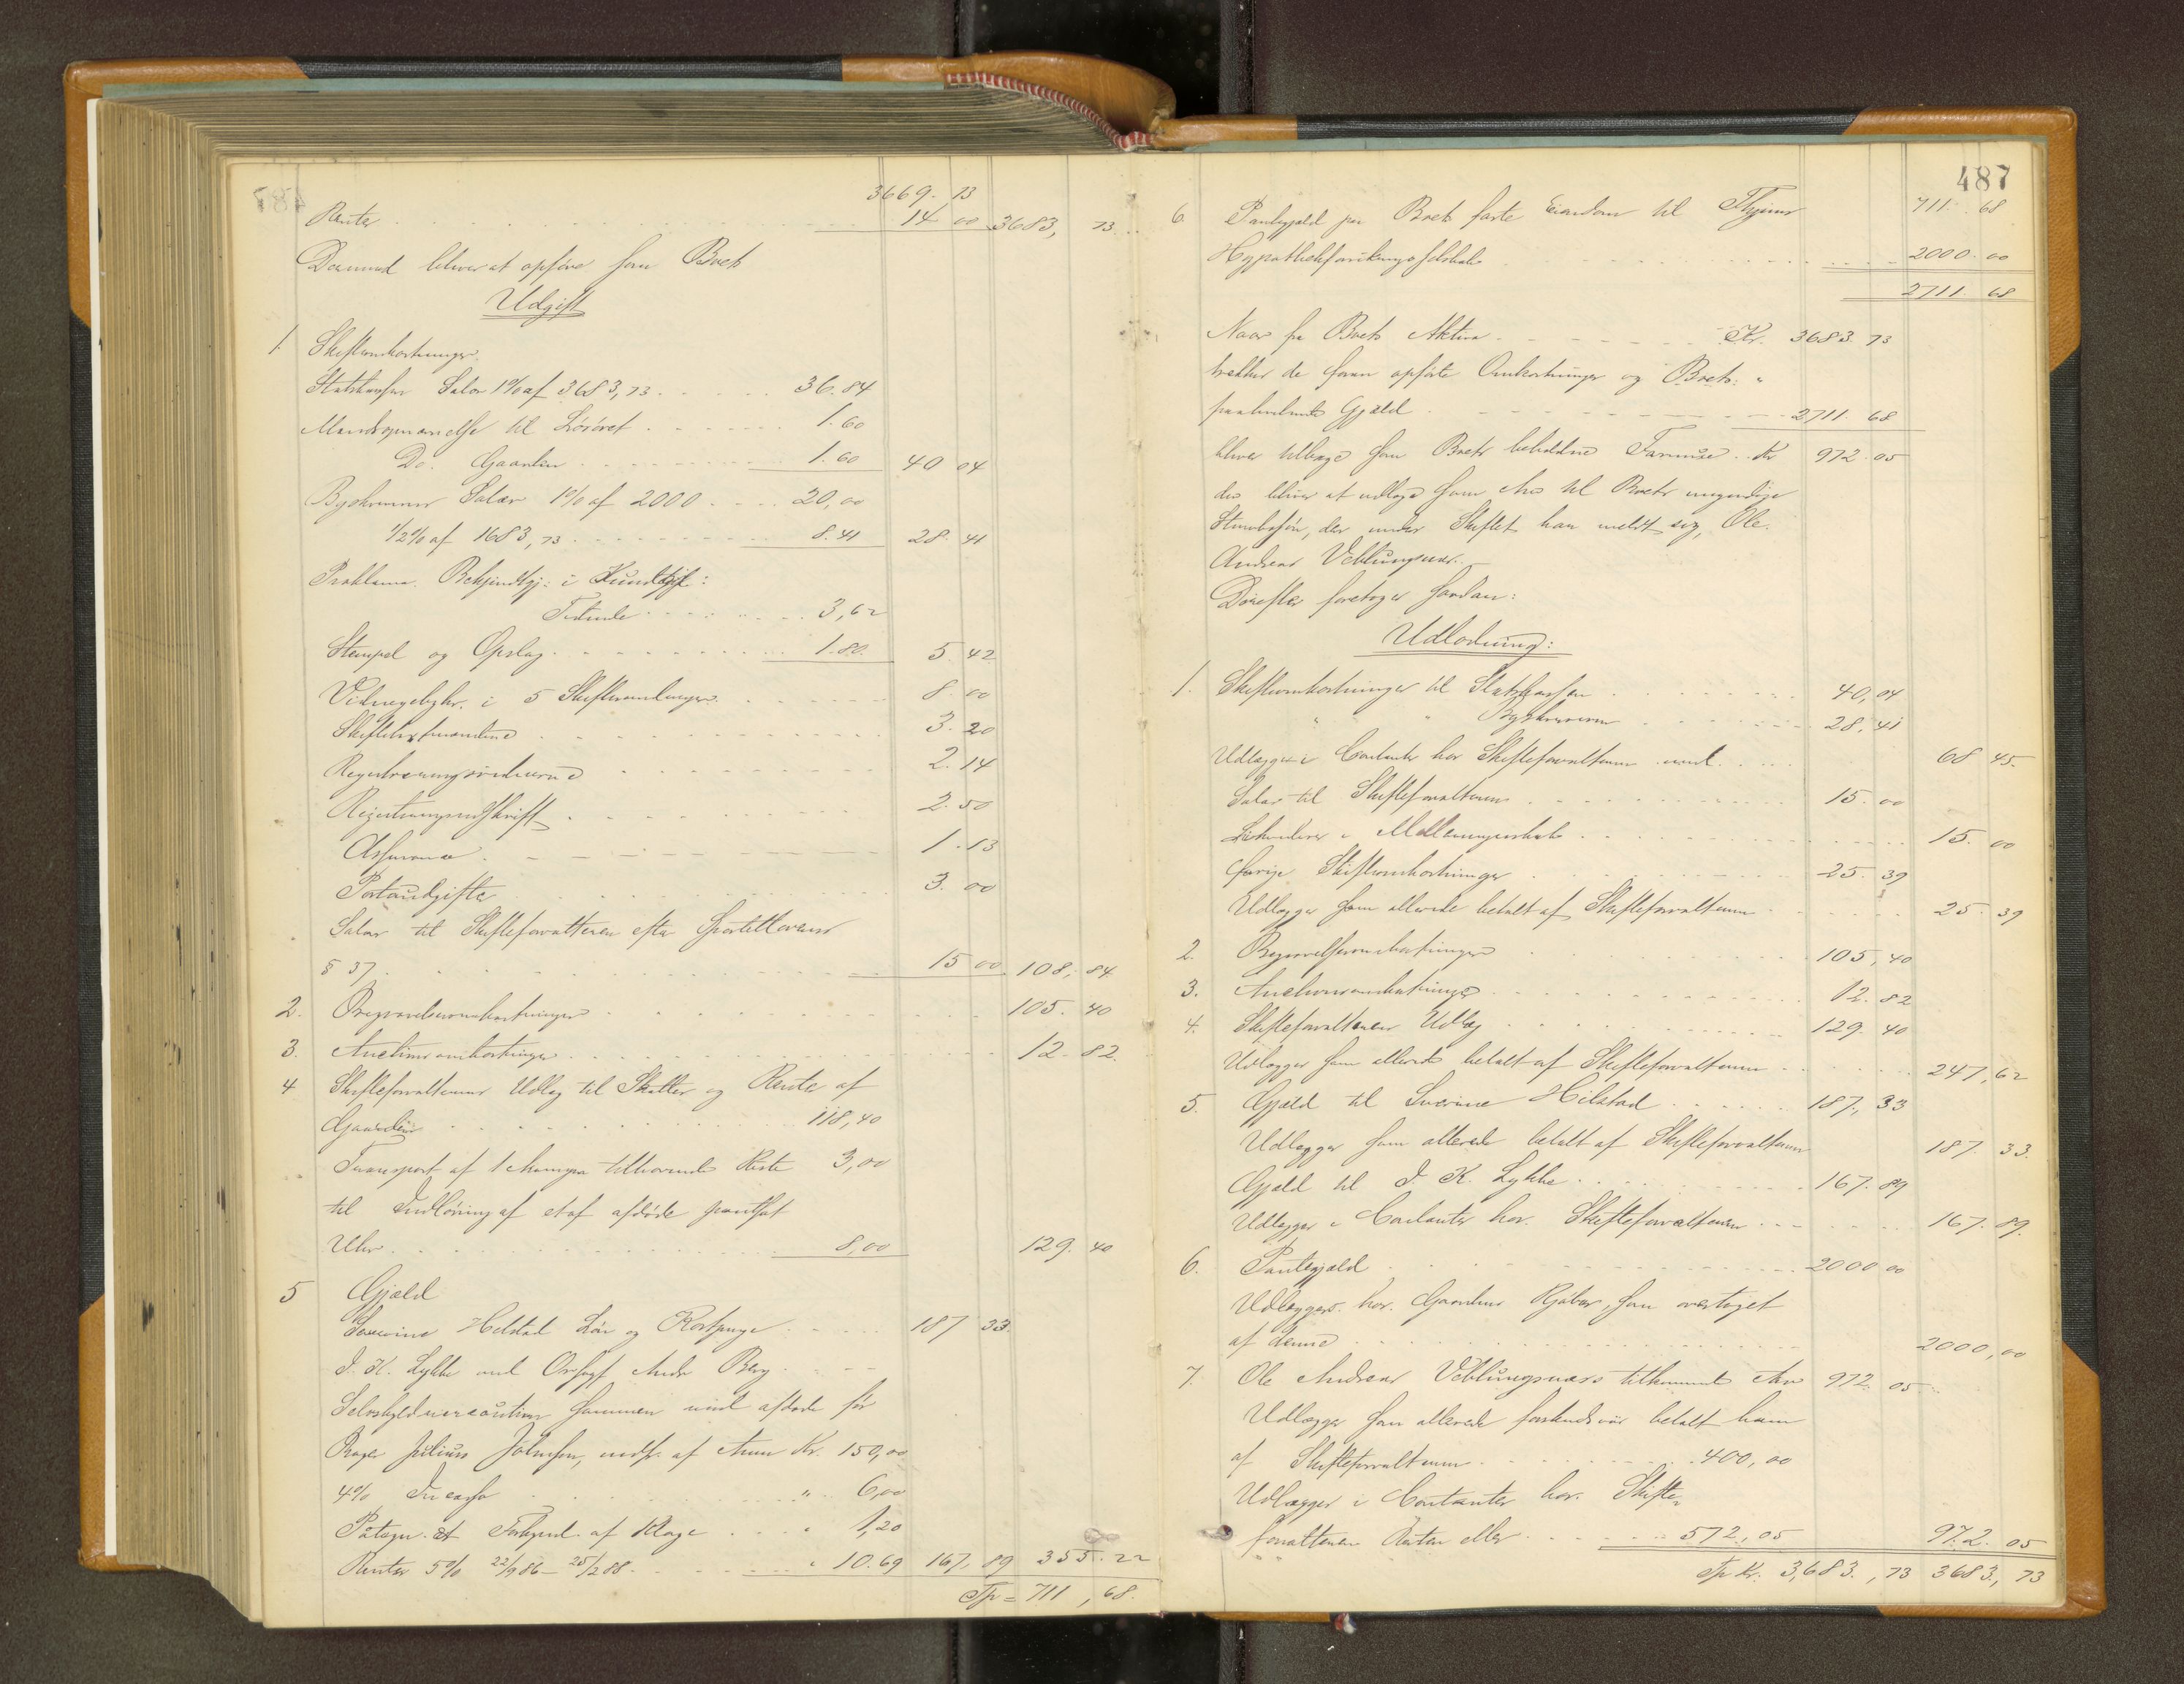 3669. 73
Renter 14 00 3683, 73
Derimod bliver at opføre som Boets
Udgift
1. Skifteomkostninger.
Statskassen Salær 1% af 3683,73 36.84
Mandsopnævnelse til Løsøret 1.60
Do. Gaarden 1.60 40 04
Byskriveren Salær 1% af 2000 20,00
1/2% af 1683,73 8.41 28.41
Proklama. Bekjendtgj: i Kundgjf:
Tidende 3,62
Stempel og Opslag 1.80. 5.42
Vidnegebyhr. i 5 Skiftesamlinger 8.00
3.20
Registreringsvidnerne 2.14
Registreringsudskrift 2.50
Assurance 1.13
Portoudgifter 3.00
Salær til Skifteforvalteren efter Sportelloven
§ 37. 15 00 108,84
2. Begravelsesomkostninger 105.40
3. Auctionsomkostninger 12.82
4 Skifteforvalterens Udlæg til Skatter og Rente af
Gaarden 118,40
Transport af 1 tilhørende Kiste 3,00
til Indløsning af et af afdøde pantsat
Uhr 8,00 129.40
5 Gjæld
Severine Helstad Løn og Kostpenge 187 33.
I. K. Lykke Andr Berg
Selvskyldnercaution sammen med afdøde for
Bager Julius Johnsen, af Kr. 150,00
4% Incasso " 6,00
Påtegn. et Forkynd. af Klage " 1,20
Renter 5% 22/9 86 - 25/2 88. " 10.69 167,89 355.22
Tp = 711,68.
487
711.68
6. Pantegjæld paa Boets faste Eiendom til Thjems
Hypothekforeningsselskab 2000.00
2711.68
Naar fra Boets Aktiva Kr. 3683.73
trækkes de foran opførte Omkostninger og Boets
paahvilende Gjæld 2711.68
bliver tilbage som Boets beholdne Formue Kr 972.05
der bliver at udlægge som Arv til Boets myndige
der under Skiftet har meldt sig, Ole
Andreas Veblungsnæs.
Derefter foretoges saadan:
Udlodning:
1. Skifteomkostninger til Statskassen 40,04
" " Byskriveren 28,41
Udlægges i Contanter hos Skifteforvalteren med 68 45.
Salær til Skifteforvalteren 15.00
Likvideres i Mellemregnskab 15.00
Øvrige Skifteomkostninger 25.39
Udlægges som allerede betalt af Skifteforvalteren 25.39
2. Begravelsesomkostninger 105,40
3. Auctionsomkostninger 12.82
4. Skifteforvalterens Udlæg 129.40
Udlægges som allerede betalt af Skifteforvalteren 247,62
5. Gjæld til Severine Hilstad 187,33
Udlægges som allerede betalt af Skifteforvalteren 187.33.
Gjæld til I. K. Lykke 167.89
Udlægges i Contanter hos Skifteforvalteren 167.89.
6. Pantegjæld 2000 00
Udlægges hos Gaardens Kjøber, som overtaget
af denne 2000,00
7. Ole Andreas Veblungsnæss tilkommende Arv 972.05
Udlægges som allerede forskudsvis betalt ham
af Skifteforvalteren 400,00
Udlægges i Contanter hos Skifte-
forvalteren Resten eller 572,05 972.05
Tp Kr. 3,683.,73 3683,73